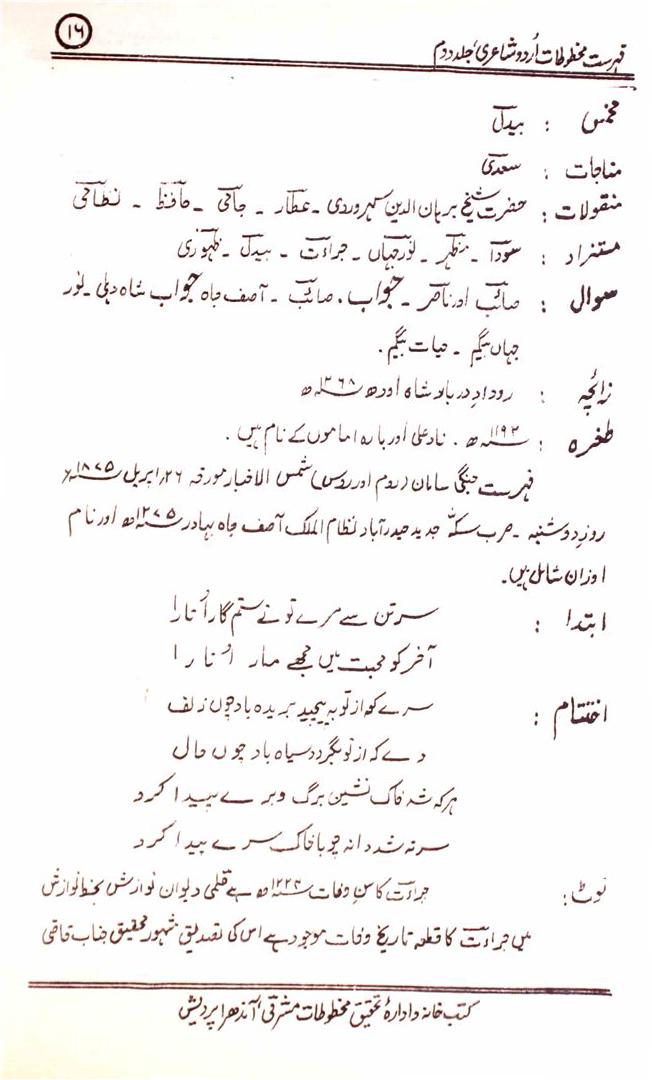 ۱۶
فہرست مخطوطات اُردو شاعری، جلد دوم
مخمس : بیدل
مناجات : سعدی
منقولات : حضرت شیخ برہان الدین سہروردی ۔ عطار ۔ جامی ۔ حافظ ۔ نظامی
مستزاد : سودا ۔ مظہر ۔ نورجہاں ۔ جراءت ۔ بیدل ۔ ظہوری
سوال : صائب اور ناصر ۔ جواب ، صائب ۔ آصف جاہ جواب شاہ دہلی ۔ نور
جہاں بیگم ۔ حیات بیگم ۔
زائچہ : روداد دربار شاہ اودھ ۱۲۶۸ھ
طغرہ : ۱۱۹۲ھ ۔ ناد علی اور بارہ اماموں کے نام ہیں ۔
فہرست جنگی سامان (روم اور روس) شمس الاخبار مورخہ ۲۶؍ اپریل ۱۸۷۵ء
روز دوشنبہ ۔ ضرب سکہ جدید حیدرآباد نظام الملک آصف جاہ بہادر ۱۲۷۵ھ اور نام
اوزان شامل ہیں۔
ابتدا : سر تن سے مرے تو نے ستم گار اُتارا
آخر کو محبت میں مجھے مار اُتارا
اختتام : سرے کہ از تو بہ پیچید بریدہ باد چوں زلف
دے کہ از تو بگردد سیاہ باد چوں خال
ہر کہ شد خاک نشین برگ و برے پیدا کرد
سر نہ شد دانہ چو با خاک سرے پیدا کرد
نوٹ : جراءت کا سن وفات ۱۲۲۴ھ ہے قلمی دیوان نوازش بخط نوازش
میں جراءت کا قطعہ تاریخ وفات موجود ہے اس کی تصدیق مشہور محقیق جناب قاضی
کتب خانہ و ادارۂ تحقیق مخطوطات مشرقی، آندھرا پردیش